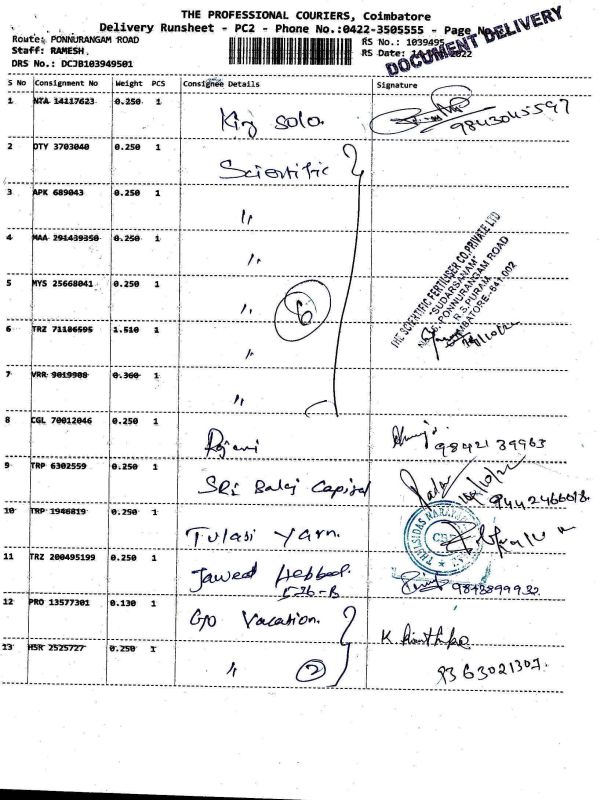 THE PROFESSIONAL COURIERS, Coimbatore
Delivery Runsheet - PC2 - Phone No.:0422-3505555 - Page No
Route: PONNURANGAM ROAD
Staff: RAMESH
DRS No.: DCJB103949501
RS No.: 1039495
RS Date: 2022
DOCUMENT DELIVERY
S No Consignment No Weight PCS Consignee Details Signature
1 NTA 14117623 0.250 1 King solo 9843045597
2 DTY 3703040 0.250 1 Scientific
3 APK 689043 0.250 1 〃
4 MAA 291439350 0.250 1 〃
5 MYS 25668041 0.250 1 〃
6
6 TRZ 71106595 1.510 1 〃
7 VRR 9019908 0.360 1 〃
THE SCIENTIFIC FERTILISER CO.PRIVATE LTD
"SUDARSANAM"
PONNURANGAM ROAD
R.S.PURAM
COIMBATORE-641 002
8 CGL 70012046 0.250 1 Rajani 9842139963
9 TRP 6302559 0.250 1 SRi Balaj Capital 9442466618
10 TRP 1946819 0.250 1 Tulasi Yarn.
11 TRZ 200495199 0.250 1 Jawed
12 PRO 13577301 0.130 1 Go Vacation.
13 HSR 2525727 0.250 1 〃 2 9363021307